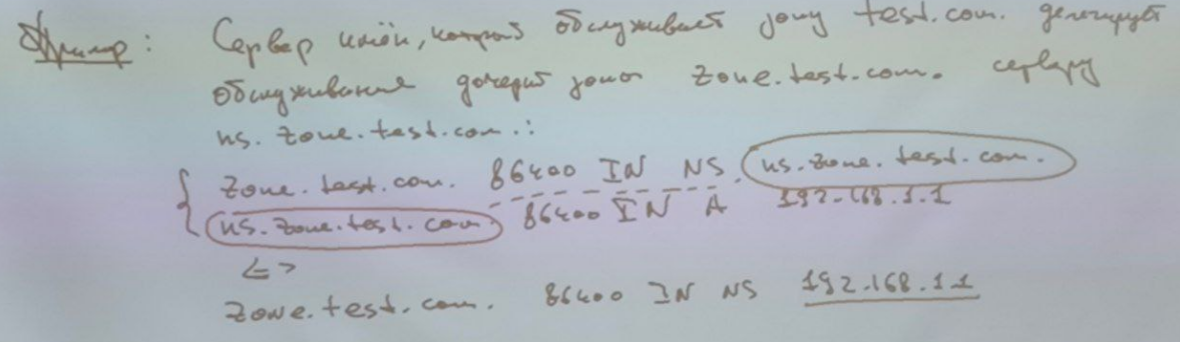 Пример: Сервер имён, который обслуживает зону test.com. делегирует
обслуживание дочерней зоны zone.test.com. серверу
ns.zone.test.com.:
zone.test.com. 86400 IN NS ns.zone.test.com.
ns.zone.test.com. 86400 IN A 192.168.1.1
<=>
zone.test.com. 86400 IN NS 192.168.1.1